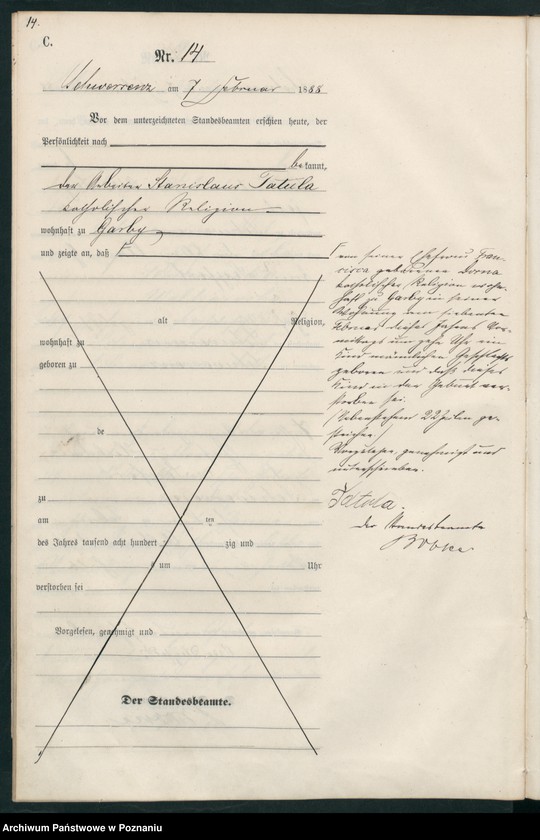 14.
C.
Nr. 14
Schwersenz am 7 Februar 1888
Vor dem unterzeichneten Standesbeamten erschien heute, der
Persönlichkeit nach
bekannt,
der Arbeiter Stanislaus Tatula
katholischer Religion
wohnhaft zu Garby
und zeigte an, daß
von seiner Ehefrau Fran-
cisca geborenen Dorna
katholischer Religion wohn-
haft zu Garby in seiner
Wohnung am siebenten
Februar dieses Jahres Vor-
mittags um zehn Uhr ein
Kind männlichen Geschlechts
geboren und daß dieses
Kind in der Geburt ver-
storben sei.
(Nebenstehend 22 Zeilen ge-
strichen)
Vorgelesen, genehmigt und
unterschrieben.
Tatula.
Der Standesbeamte
alt Religion,
wohnhaft zu
geboren zu
de
zu
am ten
des Jahres tausend acht hundert zig und
um Uhr
verstorben sei
Vorgelesen, genehmigt und
Der Standesbeamte.
Archiwum Państwowe w Poznaniu